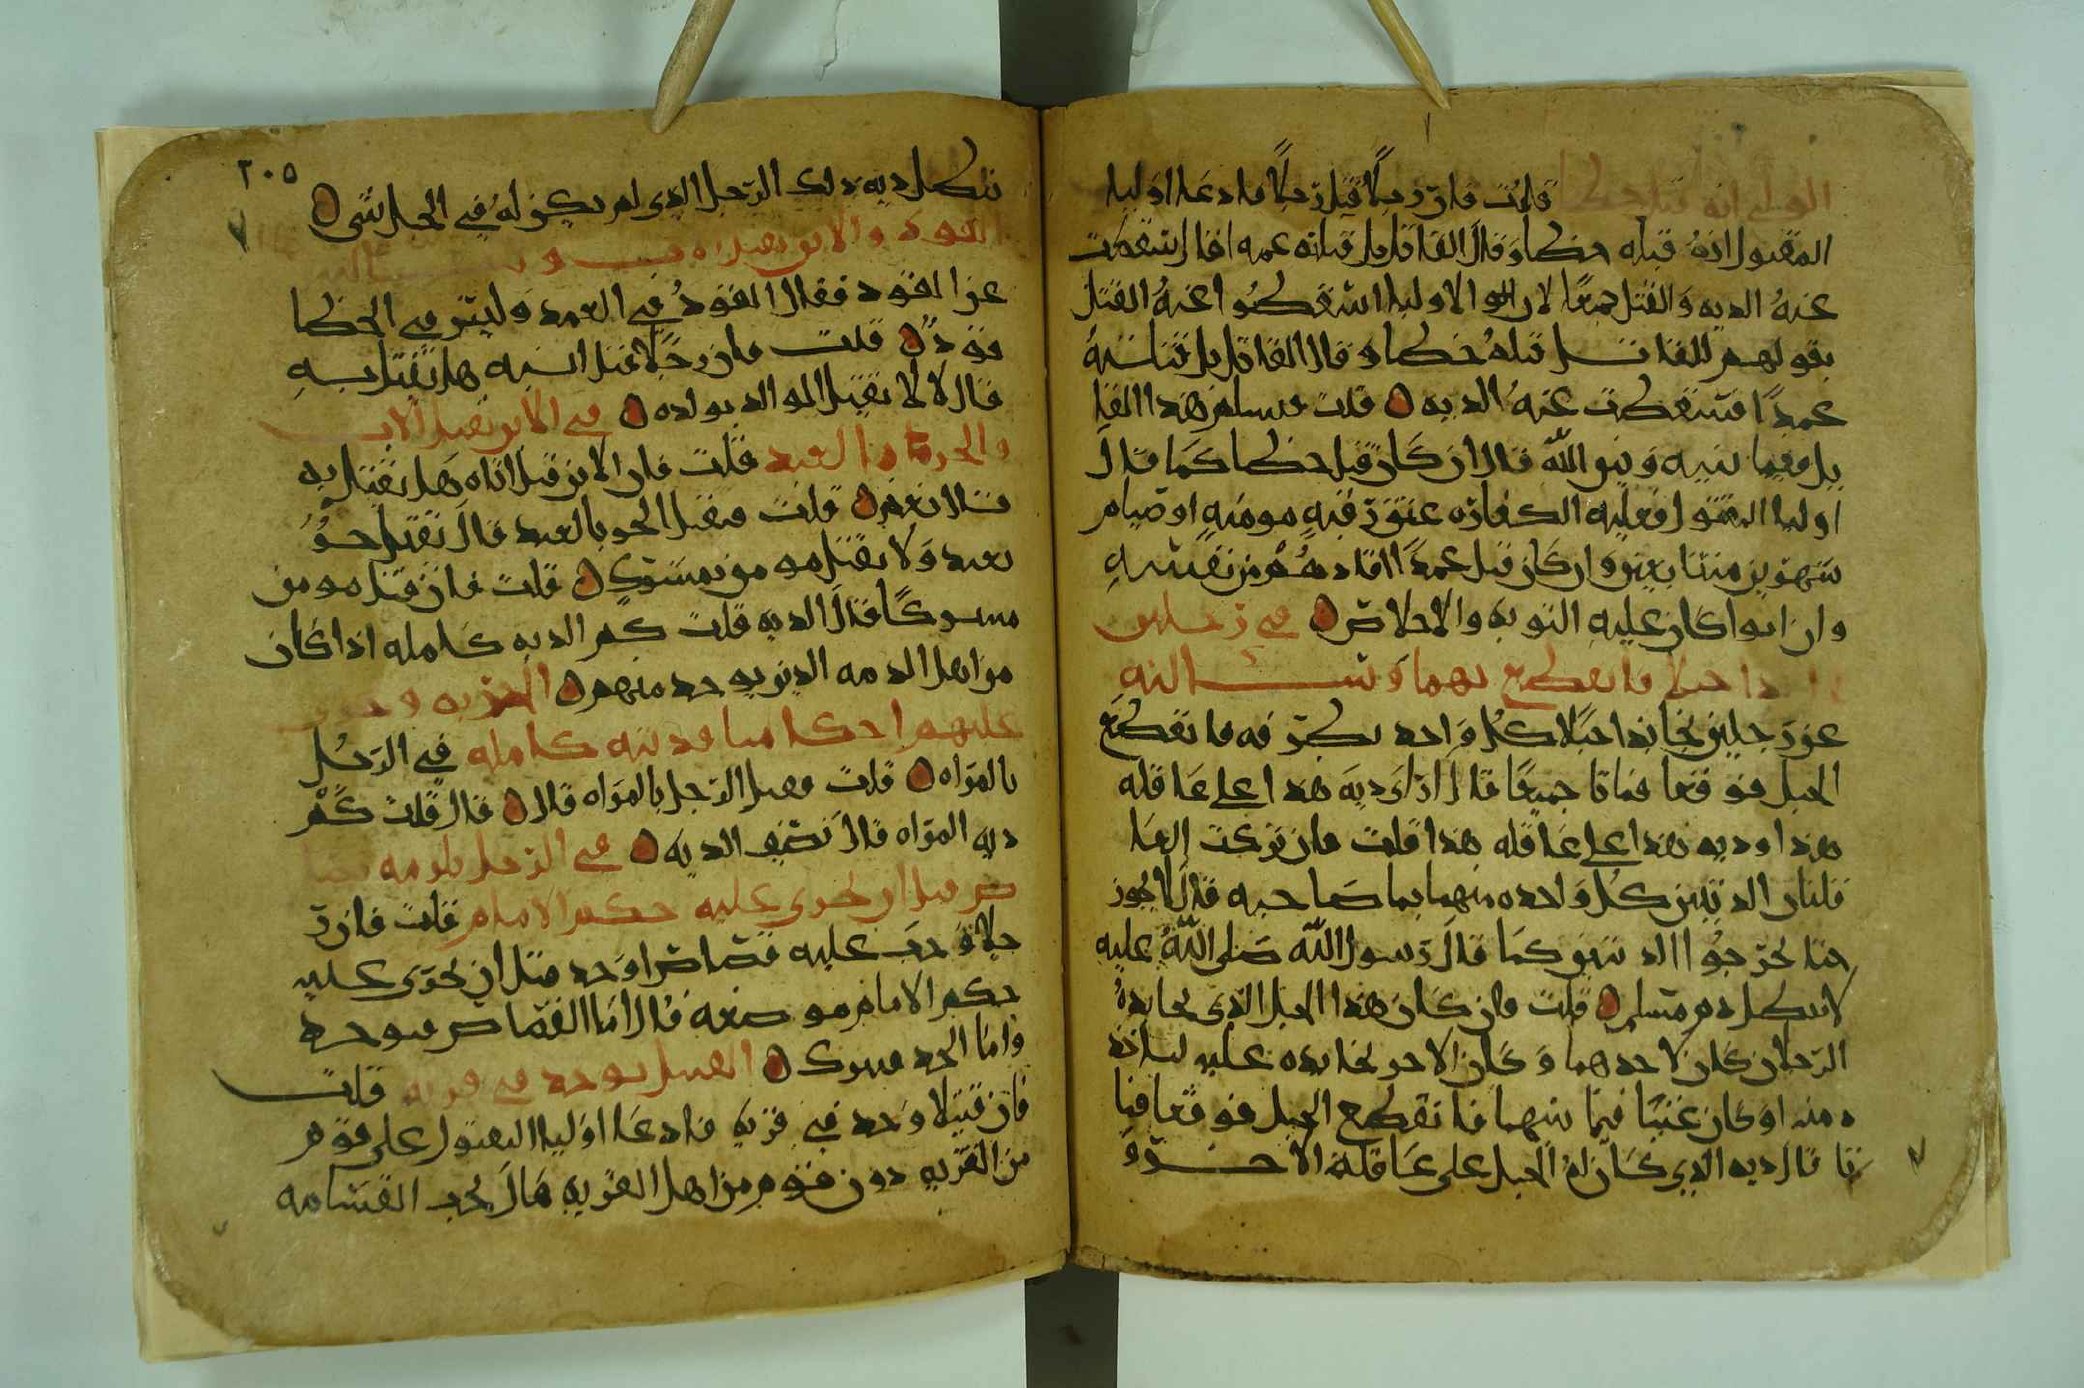 الولي انه قتل خطا قلت فان رجلا قتل رجلا فادعا اوليا
المقتول انه قتله خطا وقال القاتل بل قتلته عمدا فقال تسقط
عنه الديه والقتل جميعا لان الاوليا اسقطوا عنه القتل
بقولهم للقاتل قتله خطا وقال القاتل بل قتلته
عمدا فتسقط عنه الديه قلت فسلم هذا القا
تل فيما بينه وبين الله قال ان كان قتل خطا كما قال
اوليا المقتول فعليه الكفاره عتق رقبه مومنه او صيام
شهرين متتابعين وان كان قتل عمدا اقادهم من نفسه
وان ابوا كان عليه التوبه والاخلاص في رجلين
حبلا فانقطع بهما وسالته
عن رجلين تجابذا حبلا كل واحد بطرفه فانقطع
الحبل فوقعا فماتا جميعا قال ارا ديه هذا على عاقله
هذا وديه هذا على عاقله هذا قلت فان تركت العا
قلتان الديتين كل واحده منهما بما صاحبه قال لا يجوز
حتا يخرجوا الديتين كما قال رسول الله صلى الله عليه
لا يبطل دم مسلم قلت فان كان هذا الحبل الذي تجابذه
الرجلان كان لاحدهما وكان الاخر يجابذه عليه لياخذ
ه منه او كان غنيا فيما بينهما فانقطع الحبل فوقعا فما
تا قال ديه الذي كان له الحبل على عاقلة الاخر و
٢٠٥
تبطل ديه ذلك الرجل الذي لم يكن له في الحبل شي
القود والابن يقتل وسالته
عن القود فقال القود في العمد وليس في الخطا
قود قلت فان رجلا قتل ابنه هل يقتل به
قال لا لا يقتل الوالد بولده في الابن يقتل الاب
والحر العبد قلت فان الابن قتل اباه هل يقتل به
قال نعم قلت فيقتل الحر بالعبد قال لا يقتل حر
بعبد ولا يقتل مومن بمشرك قلت فان قتل مومن
مشركا قال الديه قلت كم الديه كامله اذا كان
من اهل الذمه الذين يوخذ منهم الجزيه و
عليهم احكامنا فديته كامله في الرجل
بالمراه قلت فيقتل الرجل بالمراه قال قال قلت كم
ديه المراه قال نصف الديه في الرجل يلزمه
قبل ان يجرى عليه حكم الامام قلت فان ر
جلا وجب عليه قصاص او حد قبل ان يجرى عليه
حكم الامام موضعه قال اما القصاص فيوخذ
واما الحد فيترك القتيل يوجد في قريه قلت
فان قتيلا وجد في قريه فادعا اوليا المقتول على قوم
من القريه دون قوم من اهل القريه قال تجب القسامه